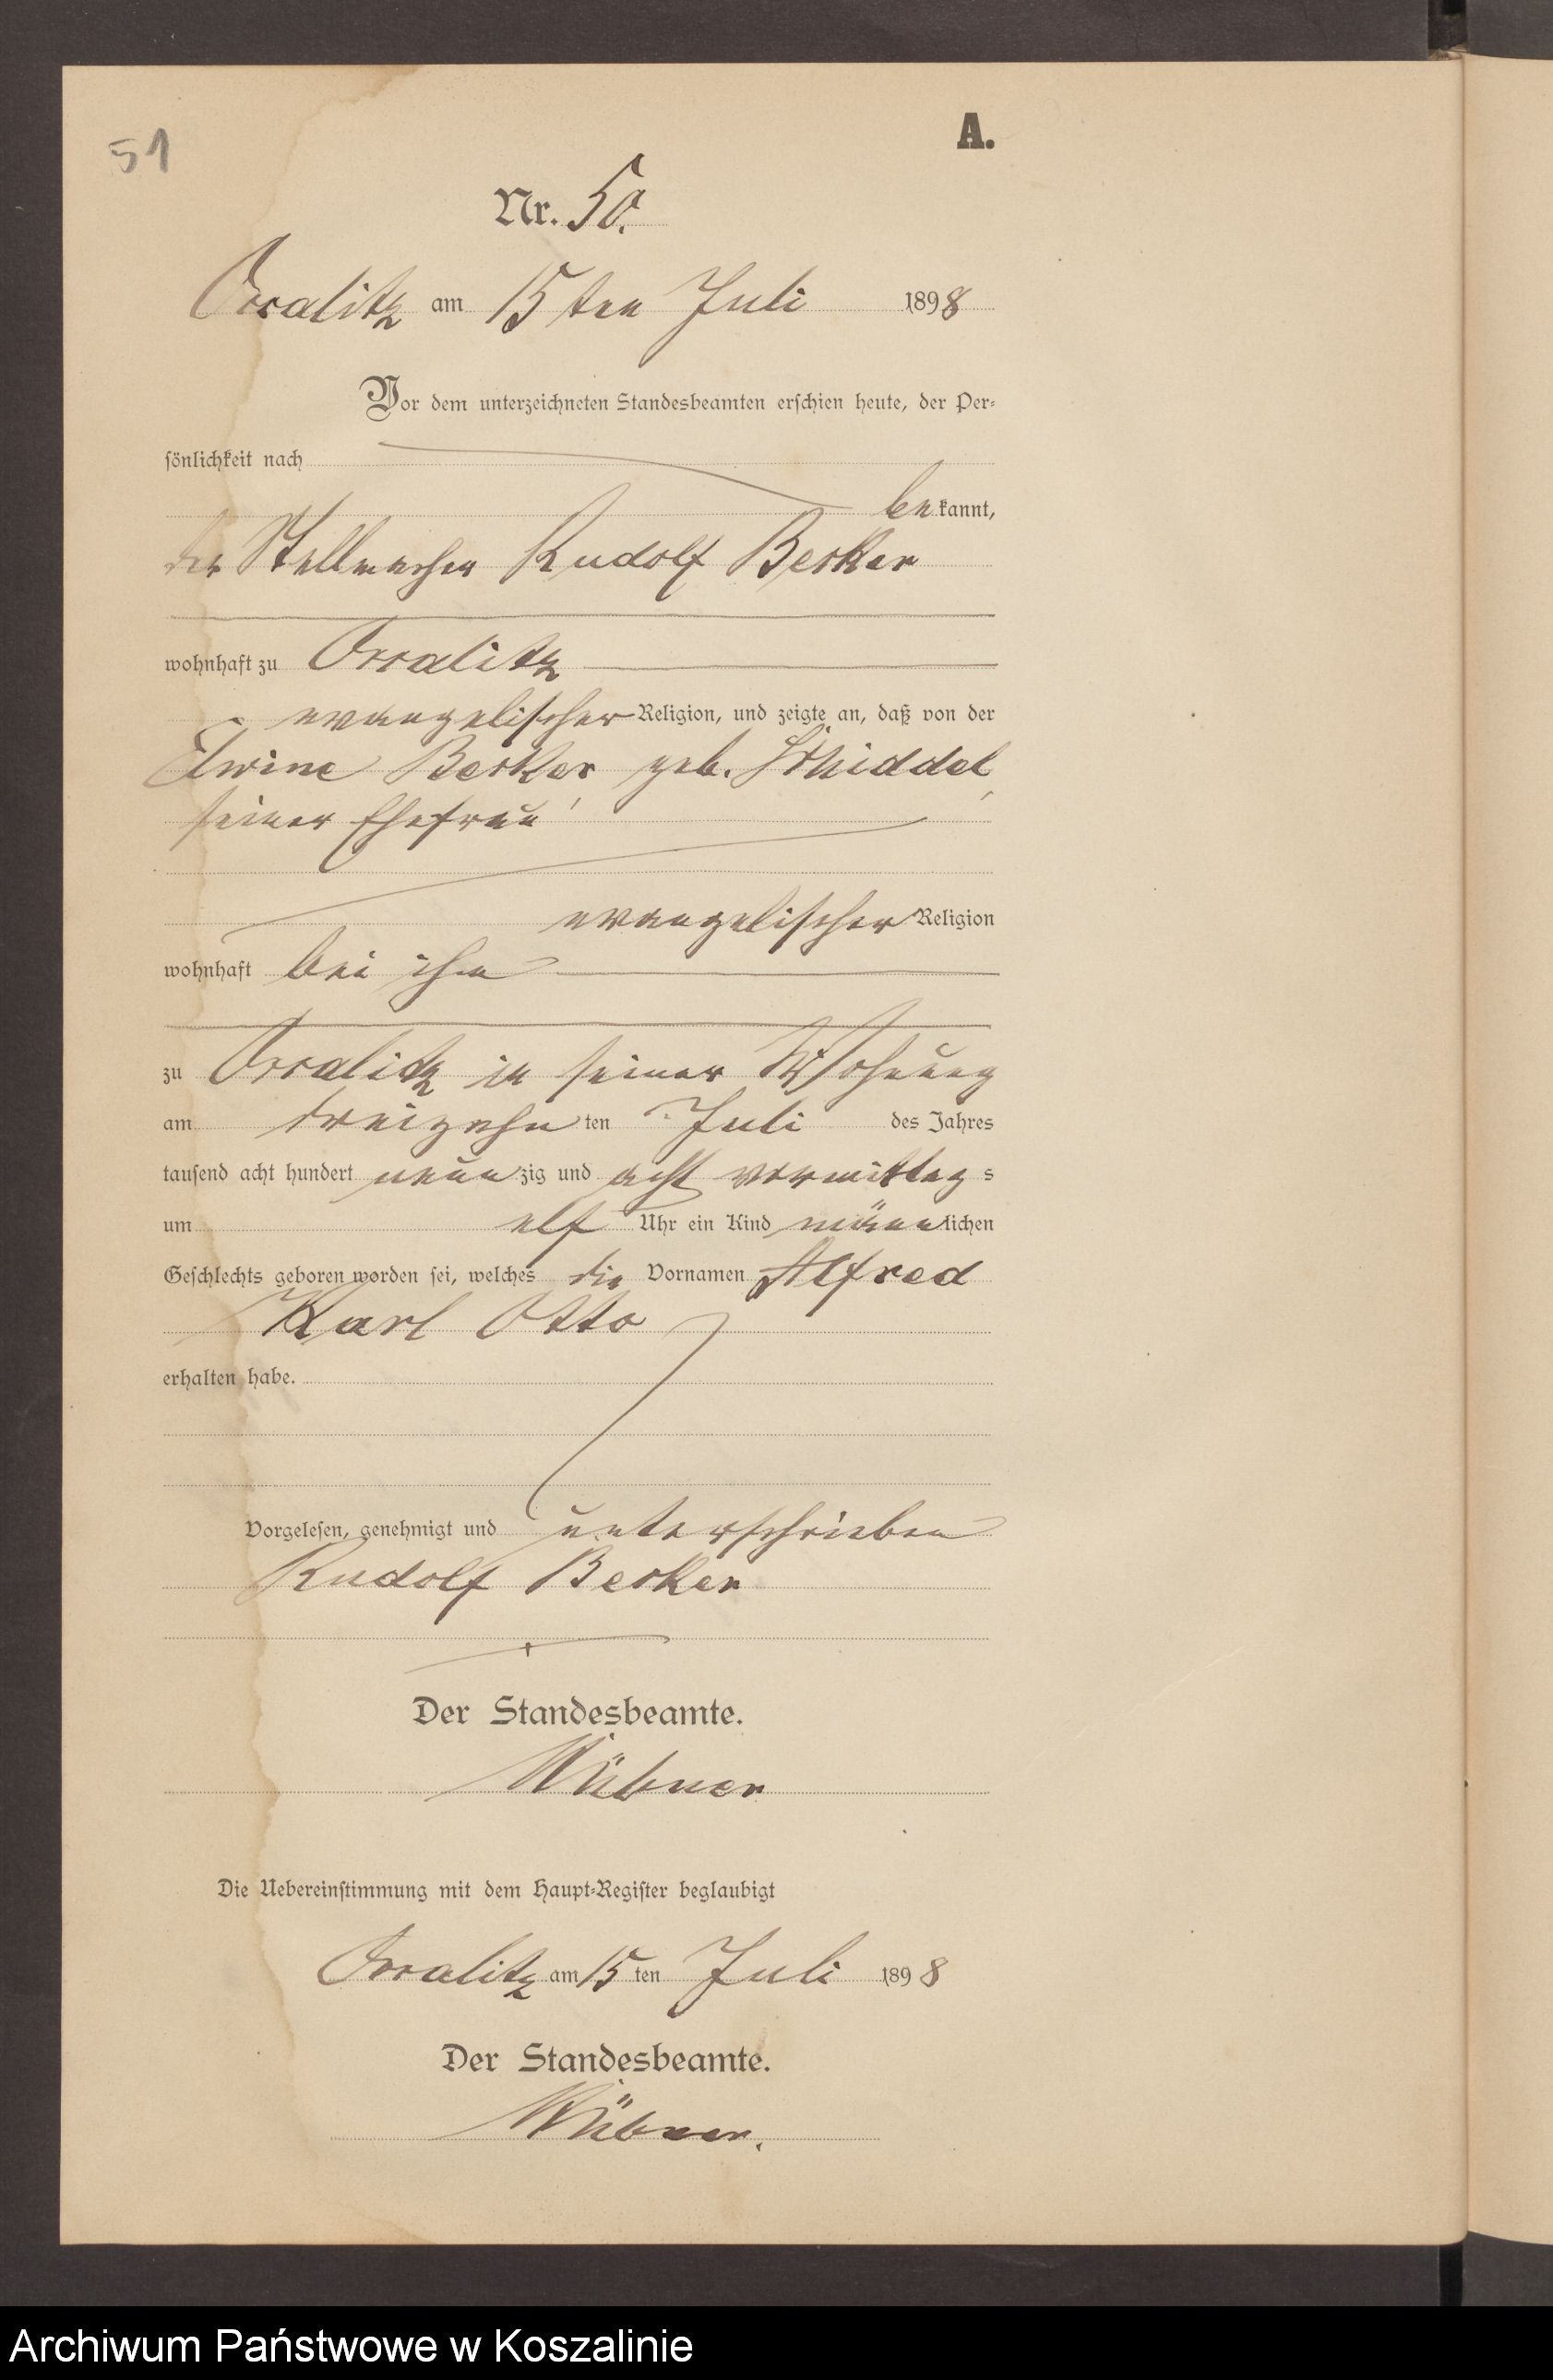 51
A.
Nr. 50.
am 15ten Juli 1898
Vor dem unterzeichneten Standesbeamten erschien heute, der Per-
sönlichkeit nach
bekannt,
der Stellmacher Rudolf Becker
wohnhaft zu
evangelischer Religion, und zeigte an, daß von der
Elwine Becker geb. Schiddel,
seiner Ehefrau
evangelischer Religion
wohnhaft bei ihm
zu in seiner Wohnung
am dreizehn ten Juli des Jahres
tausend acht hundert neunzig und acht vormittags
um elf Uhr ein Kind männlichen
Geschlechts geboren worden sei, welches die Vornamen Alfred
Karl Otto
erhalten habe.
Vorgelesen, genehmigt und unterschrieben
Rudolf Becker
Der Standesbeamte.
Die Uebereinstimmung mit dem Haupt-Register beglaubigt
am 15ten Juli 1898
Der Standesbeamte.
Archiwum Państwowe w Koszalinie